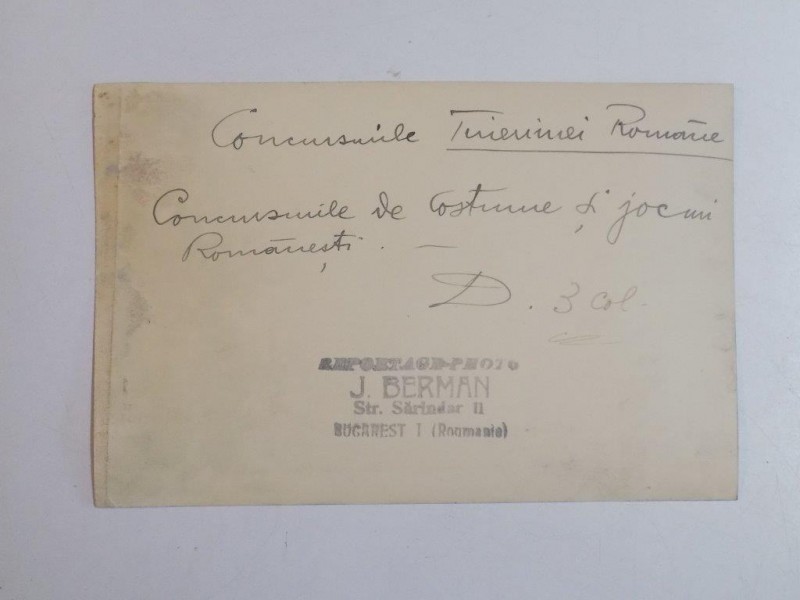 Concursurile Tinerimei Române
Concursurile de Costume și jocuri
Românești. —
D. 3 col.
REPORTAGE-PHOTO
J. BERMAN
Str. Sărindar II
BUCAREST I (Roumanie)